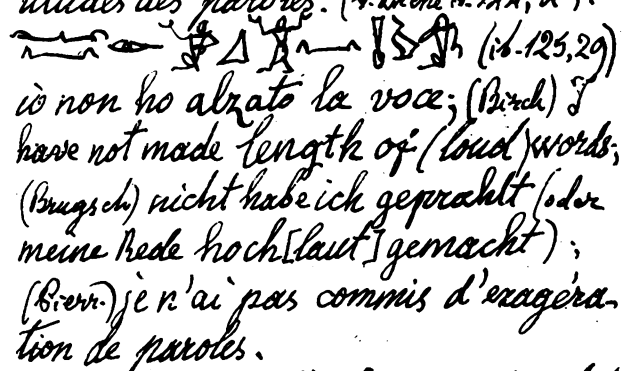 titudes des paroles. (
(ib. 125,29)
io non ho alzato la voce; (Birch) I
have not made length of (loud) words;
(Brugsch) nicht habe ich geprahlt (oder
meine Rede hoch [laut] gemacht);
(Pierr.) je n'ai pas commis d'exagéra-
tion de paroles.